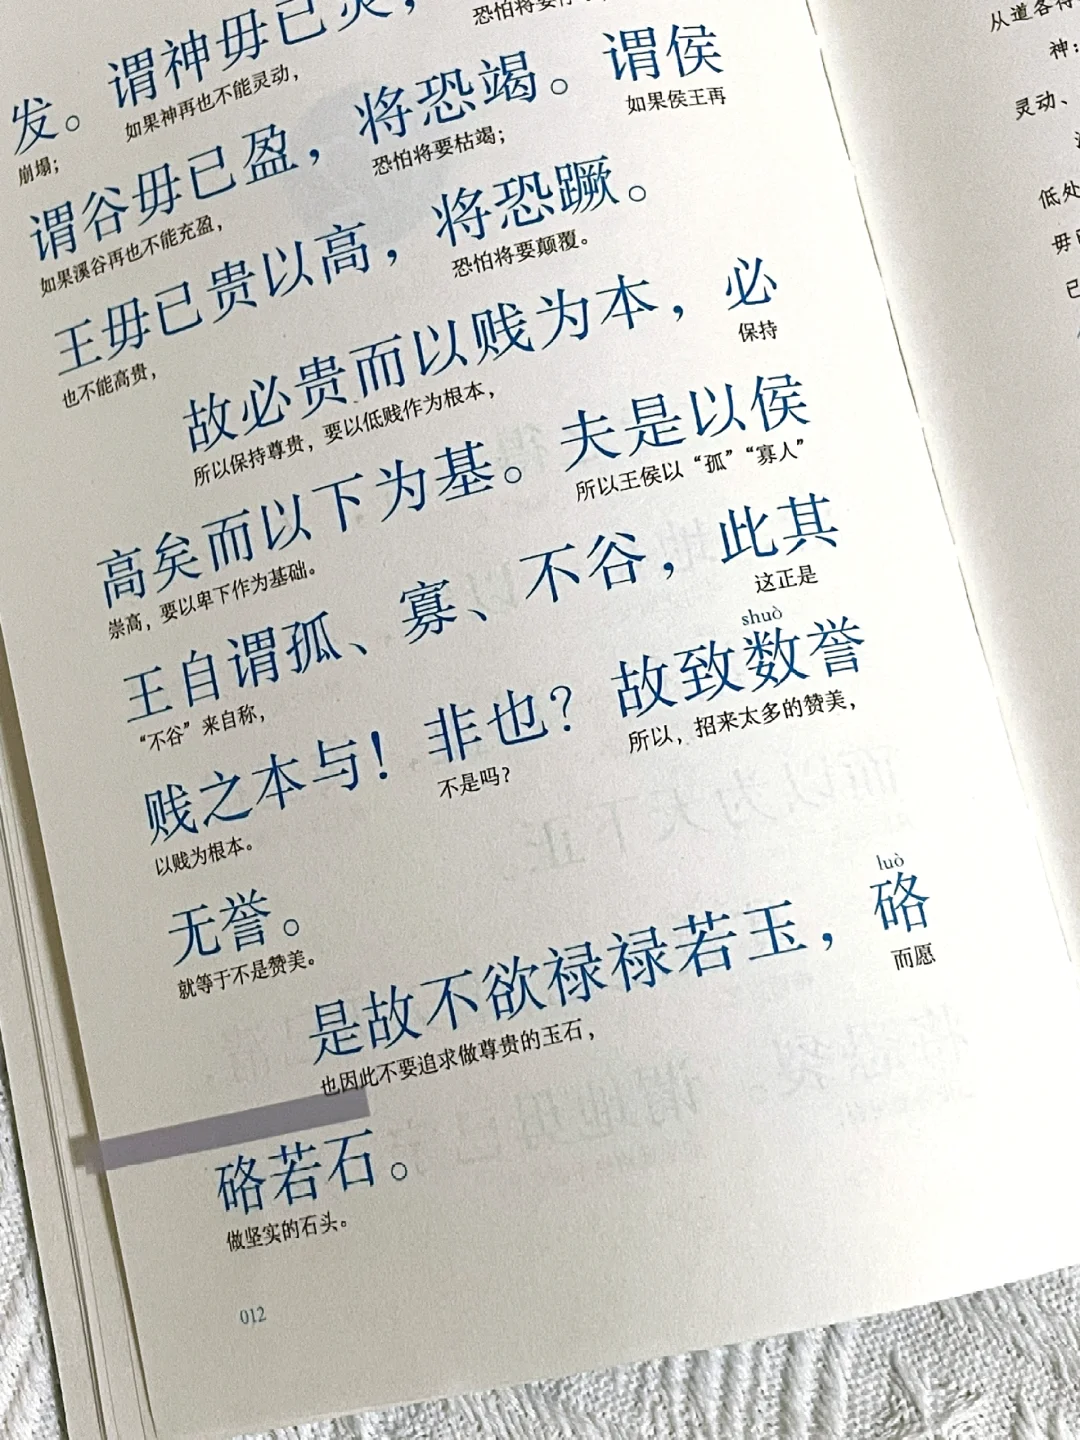 发。谓神毋已灵，
恐怕将要
崩塌；
如果神再也不能灵动，
谓谷毋已盈，将恐竭。谓侯
如果溪谷再也不能充盈，
恐怕将要枯竭；
如果侯王再
王毋已贵以高，将恐蹶。
也不能高贵，
恐怕将要颠覆。
故必贵而以贱为本，必
所以保持尊贵，要以低贱作为根本，
保持
高矣而以下为基。夫是以侯
崇高，要以卑下作为基础。
所以王侯以“孤”“寡人”
王自谓孤、寡、不谷，此其
“不谷”来自称，
这正是
shuò
贱之本与！非也？故致数誉
以贱为根本。
不是吗？
所以，招来太多的赞美，
无誉。
就等于不是赞美。
luò
是故不欲禄禄若玉，硌
也因此不要追求做尊贵的玉石，
而愿
硌若石。
做坚实的石头。
012
从道各得
神：
灵动、
低处
毋
已